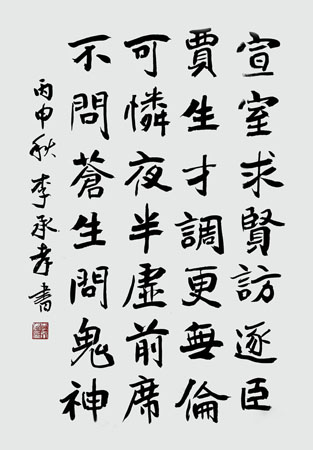 宣室求賢訪逐臣
賈生才調更無倫
可憐夜半虛前席
不問蒼生問鬼神
丙申秋李承孝書